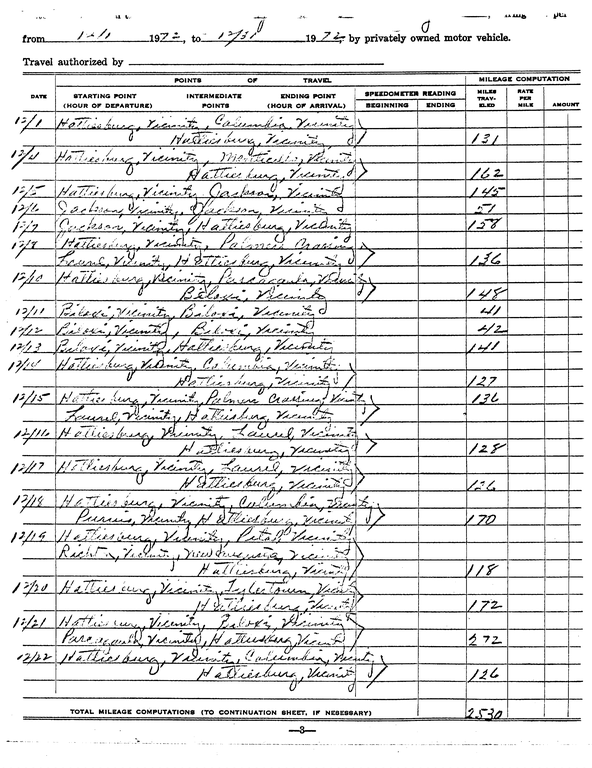 from 12/1 1972, to 12/31 1972, by privately owned motor vehicle.
Travel authorized by
POINTS OF TRAVEL
MILEAGE COMPUTATION
DATE
STARTING POINT (HOUR OF DEPARTURE)
INTERMEDIATE POINTS
ENDING POINT (HOUR OF ARRIVAL)
SPEEDOMETER READING
BEGINNING ENDING
MILES TRAV- ELED
RATE PER MILE
AMOUNT
12/1 Hattiesburg, Vicinity, Columbia, Vicinity
Hattiesburg, Vicinity 131
12/4 Hattiesburg, Vicinity, Monticello, Vicinity
Hattiesburg, Vicinity 162
12/5 Hattiesburg, Vicinity Jackson, Vicinity 145
12/6 Jackson, Vicinity, Jackson, Vicinity 51
12/7 Jackson, Vicinity, Hattiesburg, Vicinity 158
12/8 Hattiesburg, Vicinity, Palmers Crossing
Laurel, Vicinity, Hattiesburg, Vicinity 136
12/10 Hattiesburg, Vicinity, Pascagoula, Vicinity
Biloxi, Vicinity 148
12/11 Biloxi, Vicinity, Biloxi, Vicinity 41
12/12 Biloxi, Vicinity, Biloxi, Vicinity 42
12/13 Biloxi, Vicinity, Hattiesburg, Vicinity 141
12/14 Hattiesburg, Vicinity, Columbia, Vicinity
Hattiesburg, Vicinity 127
12/15 Hattiesburg, Vicinity, Palmers Crossing, Vicinity 136
Laurel, Vicinity, Hattiesburg, Vicinity
12/16 Hattiesburg, Vicinity, Laurel, Vicinity
Hattiesburg, Vicinity 128
12/17 Hattiesburg, Vicinity, Laurel, Vicinity
Hattiesburg, Vicinity 126
12/18 Hattiesburg, Vicinity, Columbia, Vicinity,
Purvis, Vicinity, Hattiesburg, Vicinity 170
12/19 Hattiesburg, Vicinity, Petal, Vicinity
Richton, Vicinity, New Augusta, Vicinity
Hattiesburg, Vicinity 118
12/20 Hattiesburg, Vicinity, Tylertown, Vicinity
Hattiesburg, Vicinity 172
12/21 Hattiesburg, Vicinity, Biloxi, Vicinity
Pascagoula, Vicinity, Hattiesburg, Vicinity 272
12/22 Hattiesburg, Vicinity, Columbia, Vicinity
Hattiesburg, Vicinity 126
TOTAL MILEAGE COMPUTATIONS (TO CONTINUATION SHEET, IF NECESSARY) 2530
—3—